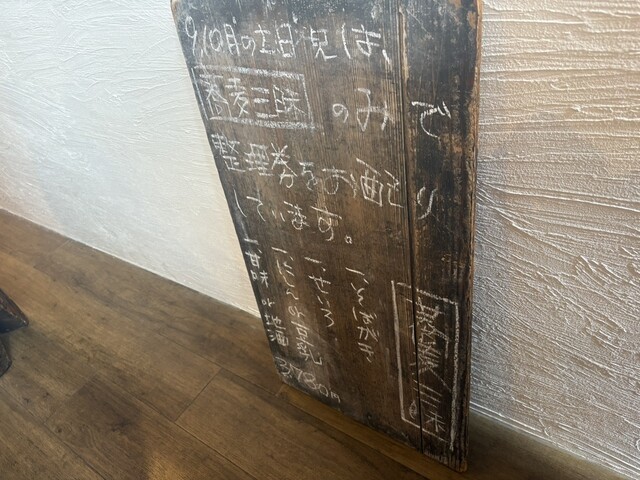 9,10月の土日祝は、
蕎麦三昧 のみで
整理券をお配り
しています。
蕎麦三昧
一、そばがき
一、せいろ
一、にしんの甘露煮
一、甘味 or 地酒
3,780円